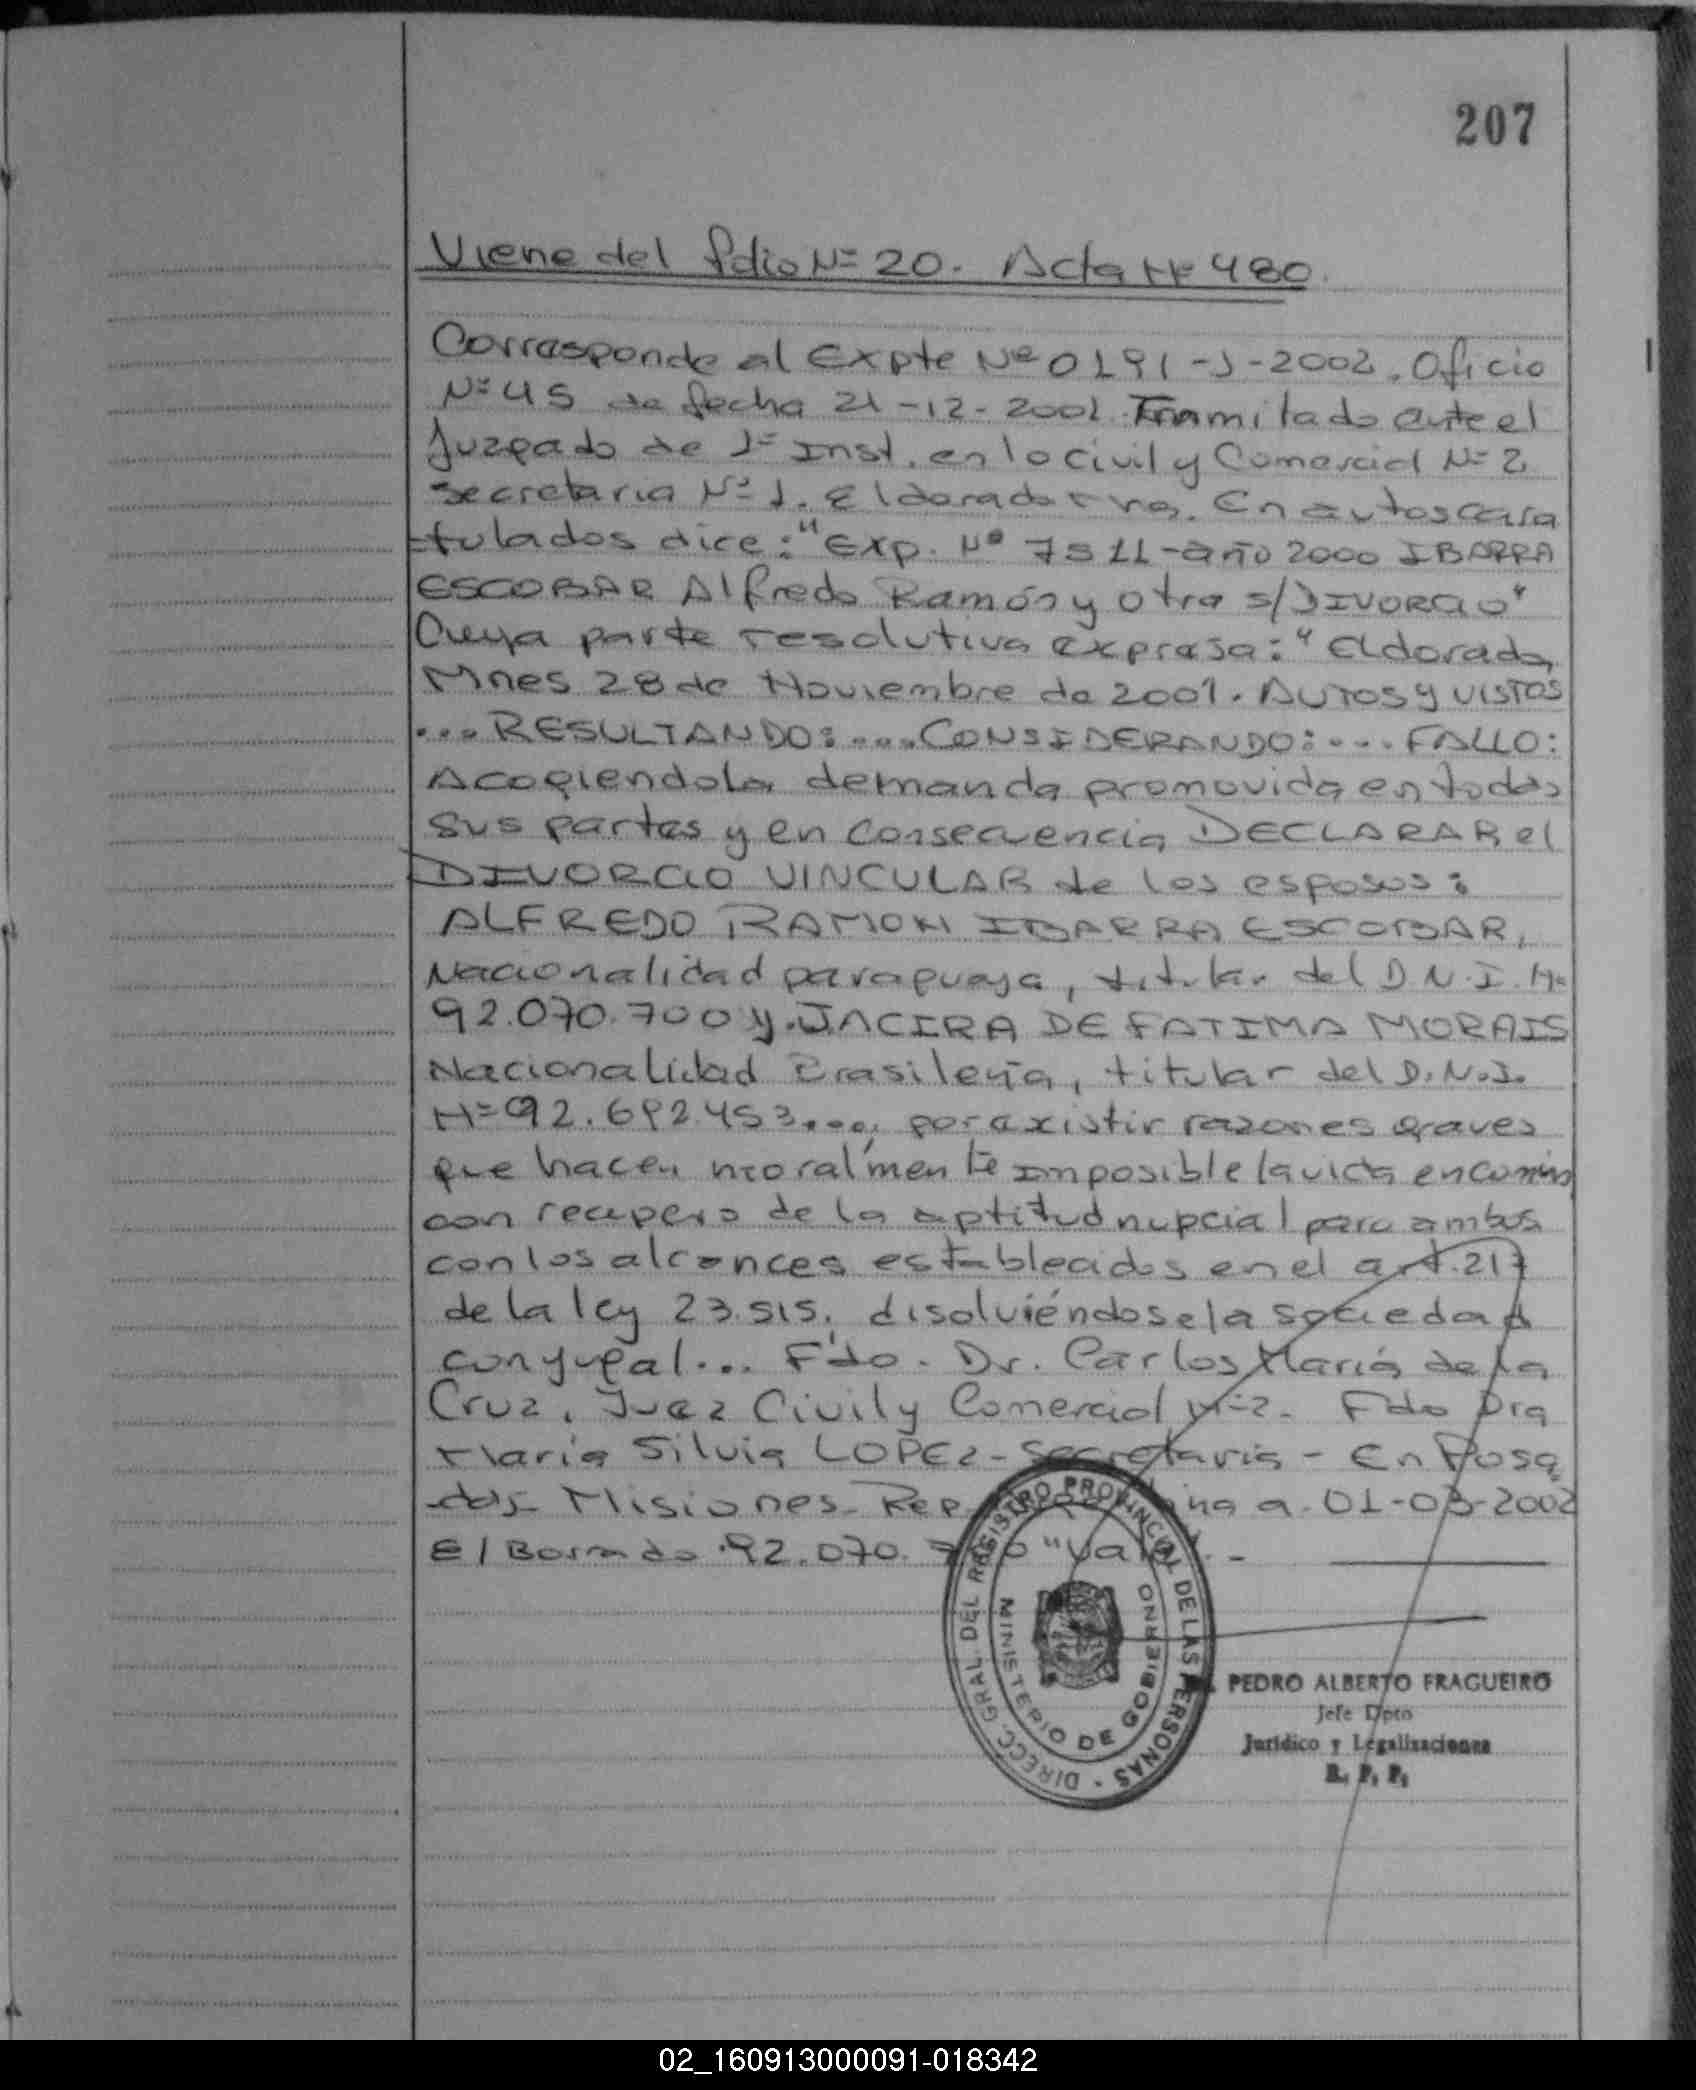 207
Viene del folio Nº 20. Acta Nº 480.
Corresponde al Expte Nº 0191-J-2002. Oficio
Nº 45 de fecha 21-12-2001. Tramitado ante el
Juzgado de 1º Inst. en lo Civil y Comercial Nº 2
Secretaria Nº 1. Eldorado. En autos cara
tulados dice: "Exp. Nº 7511-año 2000 IBARRA
ESCOBAR Alfredo Ramón y otra s/DIVORCIO"
Cuya parte resolutiva expresa: "Eldorado,
Mnes 28 de Noviembre de 2001. AUTOS y VISTOS
...RESULTANDO:....CONSIDERANDO:....FALLO:
Acogiendo la demanda promovida en todas
sus partes y en consecuencia DECLARAR el
DIVORCIO VINCULAR de los esposos:
ALFREDO RAMON IBARRA ESCOBAR,
Nacionalidad paraguaya, titular del D.N.I. Nº
92.070.700 y JACIRA DE FATIMA MORAIS
Nacionalidad Brasileña, titular del D.N.I.
Nº 92.692.453..., por existir razones graves
que hacen moralmente imposible la vida en común
con recupero de la aptitud nupcial para ambos
con los alcances establecidos en el art. 217
de la ley 23.515, disolviéndose la sociedad
conyugal... Fdo. Dr. Carlos María de la
Cruz, Juez Civil y Comercial Nº 2. Fdo Dra
María Silvia LOPEZ-Secretaria - En Posa
das Misiones. Rep. a 01-03-2002
El Borrado 92.070.700 "Vale". -
DIRECC. GRAL. DEL REGISTRO PROVINCIAL DE LAS PERSONAS -
MINISTERIO DE GOBIERNO
PEDRO ALBERTO FRAGUEIRO
Jefe Dpto
Jurídico y Legalizaciones
R. P. P.
02_160913000091-018342